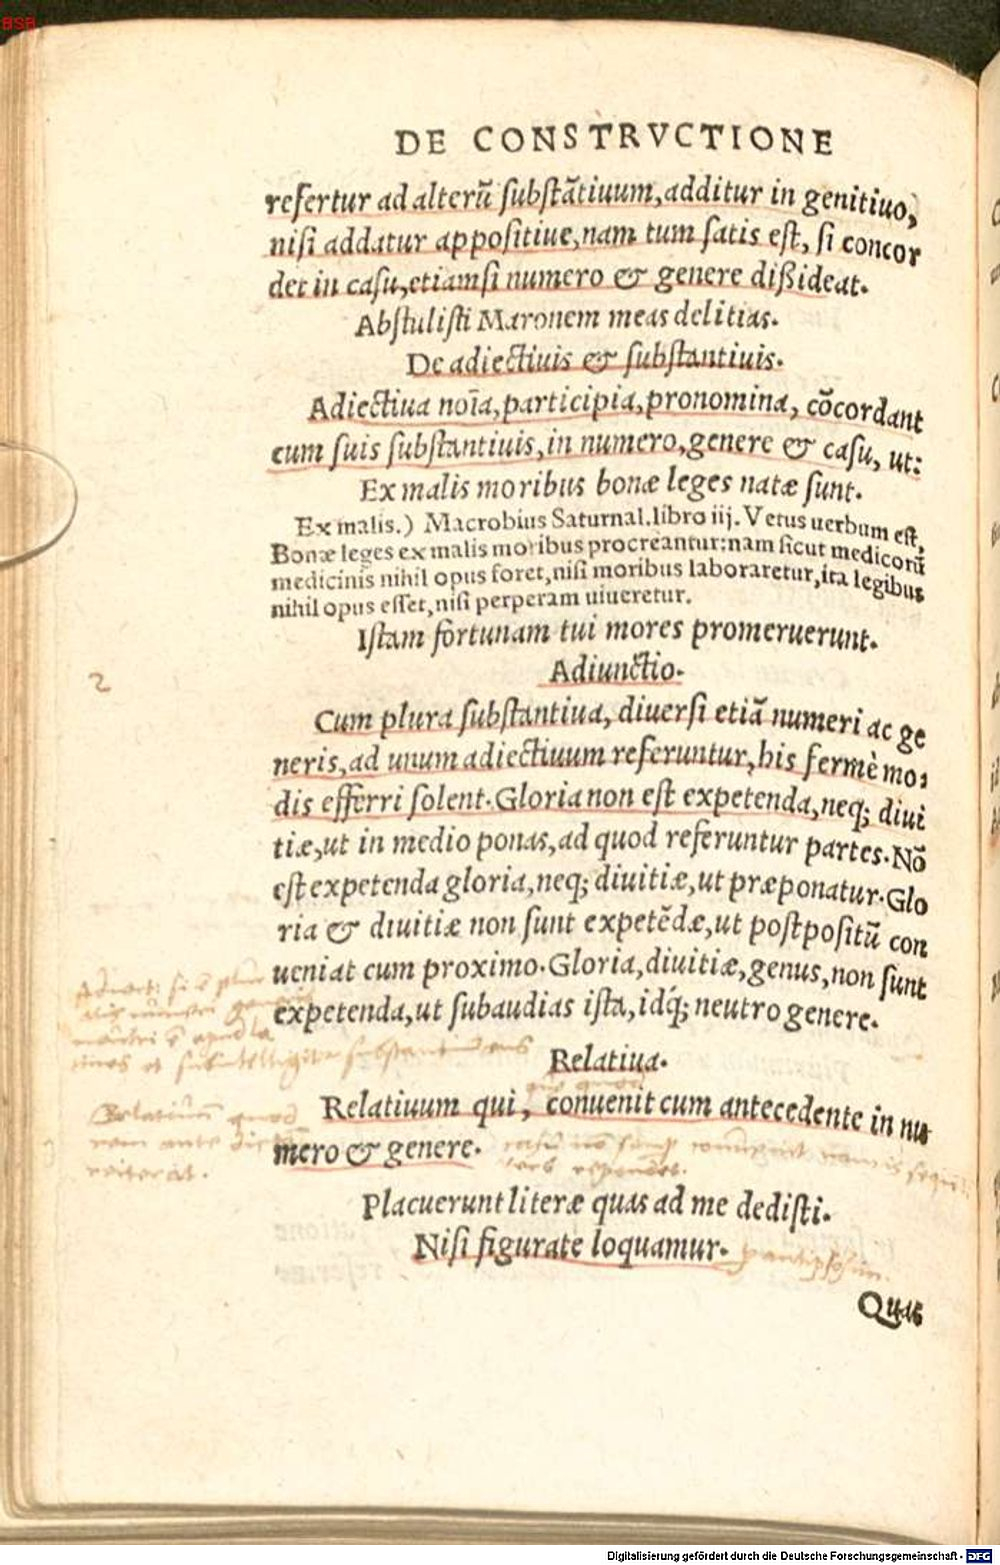 BSB
DE CONSTRVCTIONE
refertur ad alterũ ſubſtãtiuum, additur in genitiuo,
niſi addatur appoſitiue, nam tum ſatis eſt, ſi concor
det in caſu, etiamſi numero & genere dißideat.
Abſtuliſti Maronem meas delitias.
De adiectiuis & ſubſtantiuis.
Adiectiua noĩa, participia, pronomina, cõcordant
cum ſuis ſubſtantiuis, in numero, genere & caſu, ut:
Ex malis moribus bonæ leges natæ ſunt.
Ex malis.) Macrobius Saturnal. libro iij. Vetus uerbum eſt,
Bonæ leges ex malis moribus procreantur: nam ſicut medicorũ
medicinis nihil opus foret, niſi moribus laboraretur, ita legibus
nihil opus eſſet, niſi perperam uiueretur.
Iſtam fortunam tui mores promeruerunt.
Adiunctio.
2
Cum plura ſubſtantiua, diuerſi etiã numeri ac ge
neris, ad unum adiectiuum referuntur, his fermè mo-
dis efferri ſolent. Gloria non eſt expetenda, neq; diui
tiæ, ut in medio ponas, ad quod referuntur partes. Nõ
eſt expetenda gloria, neq; diuitiæ, ut præponatur. Glo
ria & diuitiæ non ſunt expetẽdæ, ut poſtpoſitũ con
ueniat cum proximo. Gloria, diuitiæ, genus, non ſunt
expetenda, ut ſubaudias iſta, idq́; neutro genere.
Relatiua.
Relatiuum qui, conuenit cum antecedente in nu
mero & genere.
Placuerunt literæ quas ad me dediſti.
Niſi figurate loquamur.
Quas
Digitalisierung gefördert durch die Deutsche Forschungsgemeinschaft - DFG